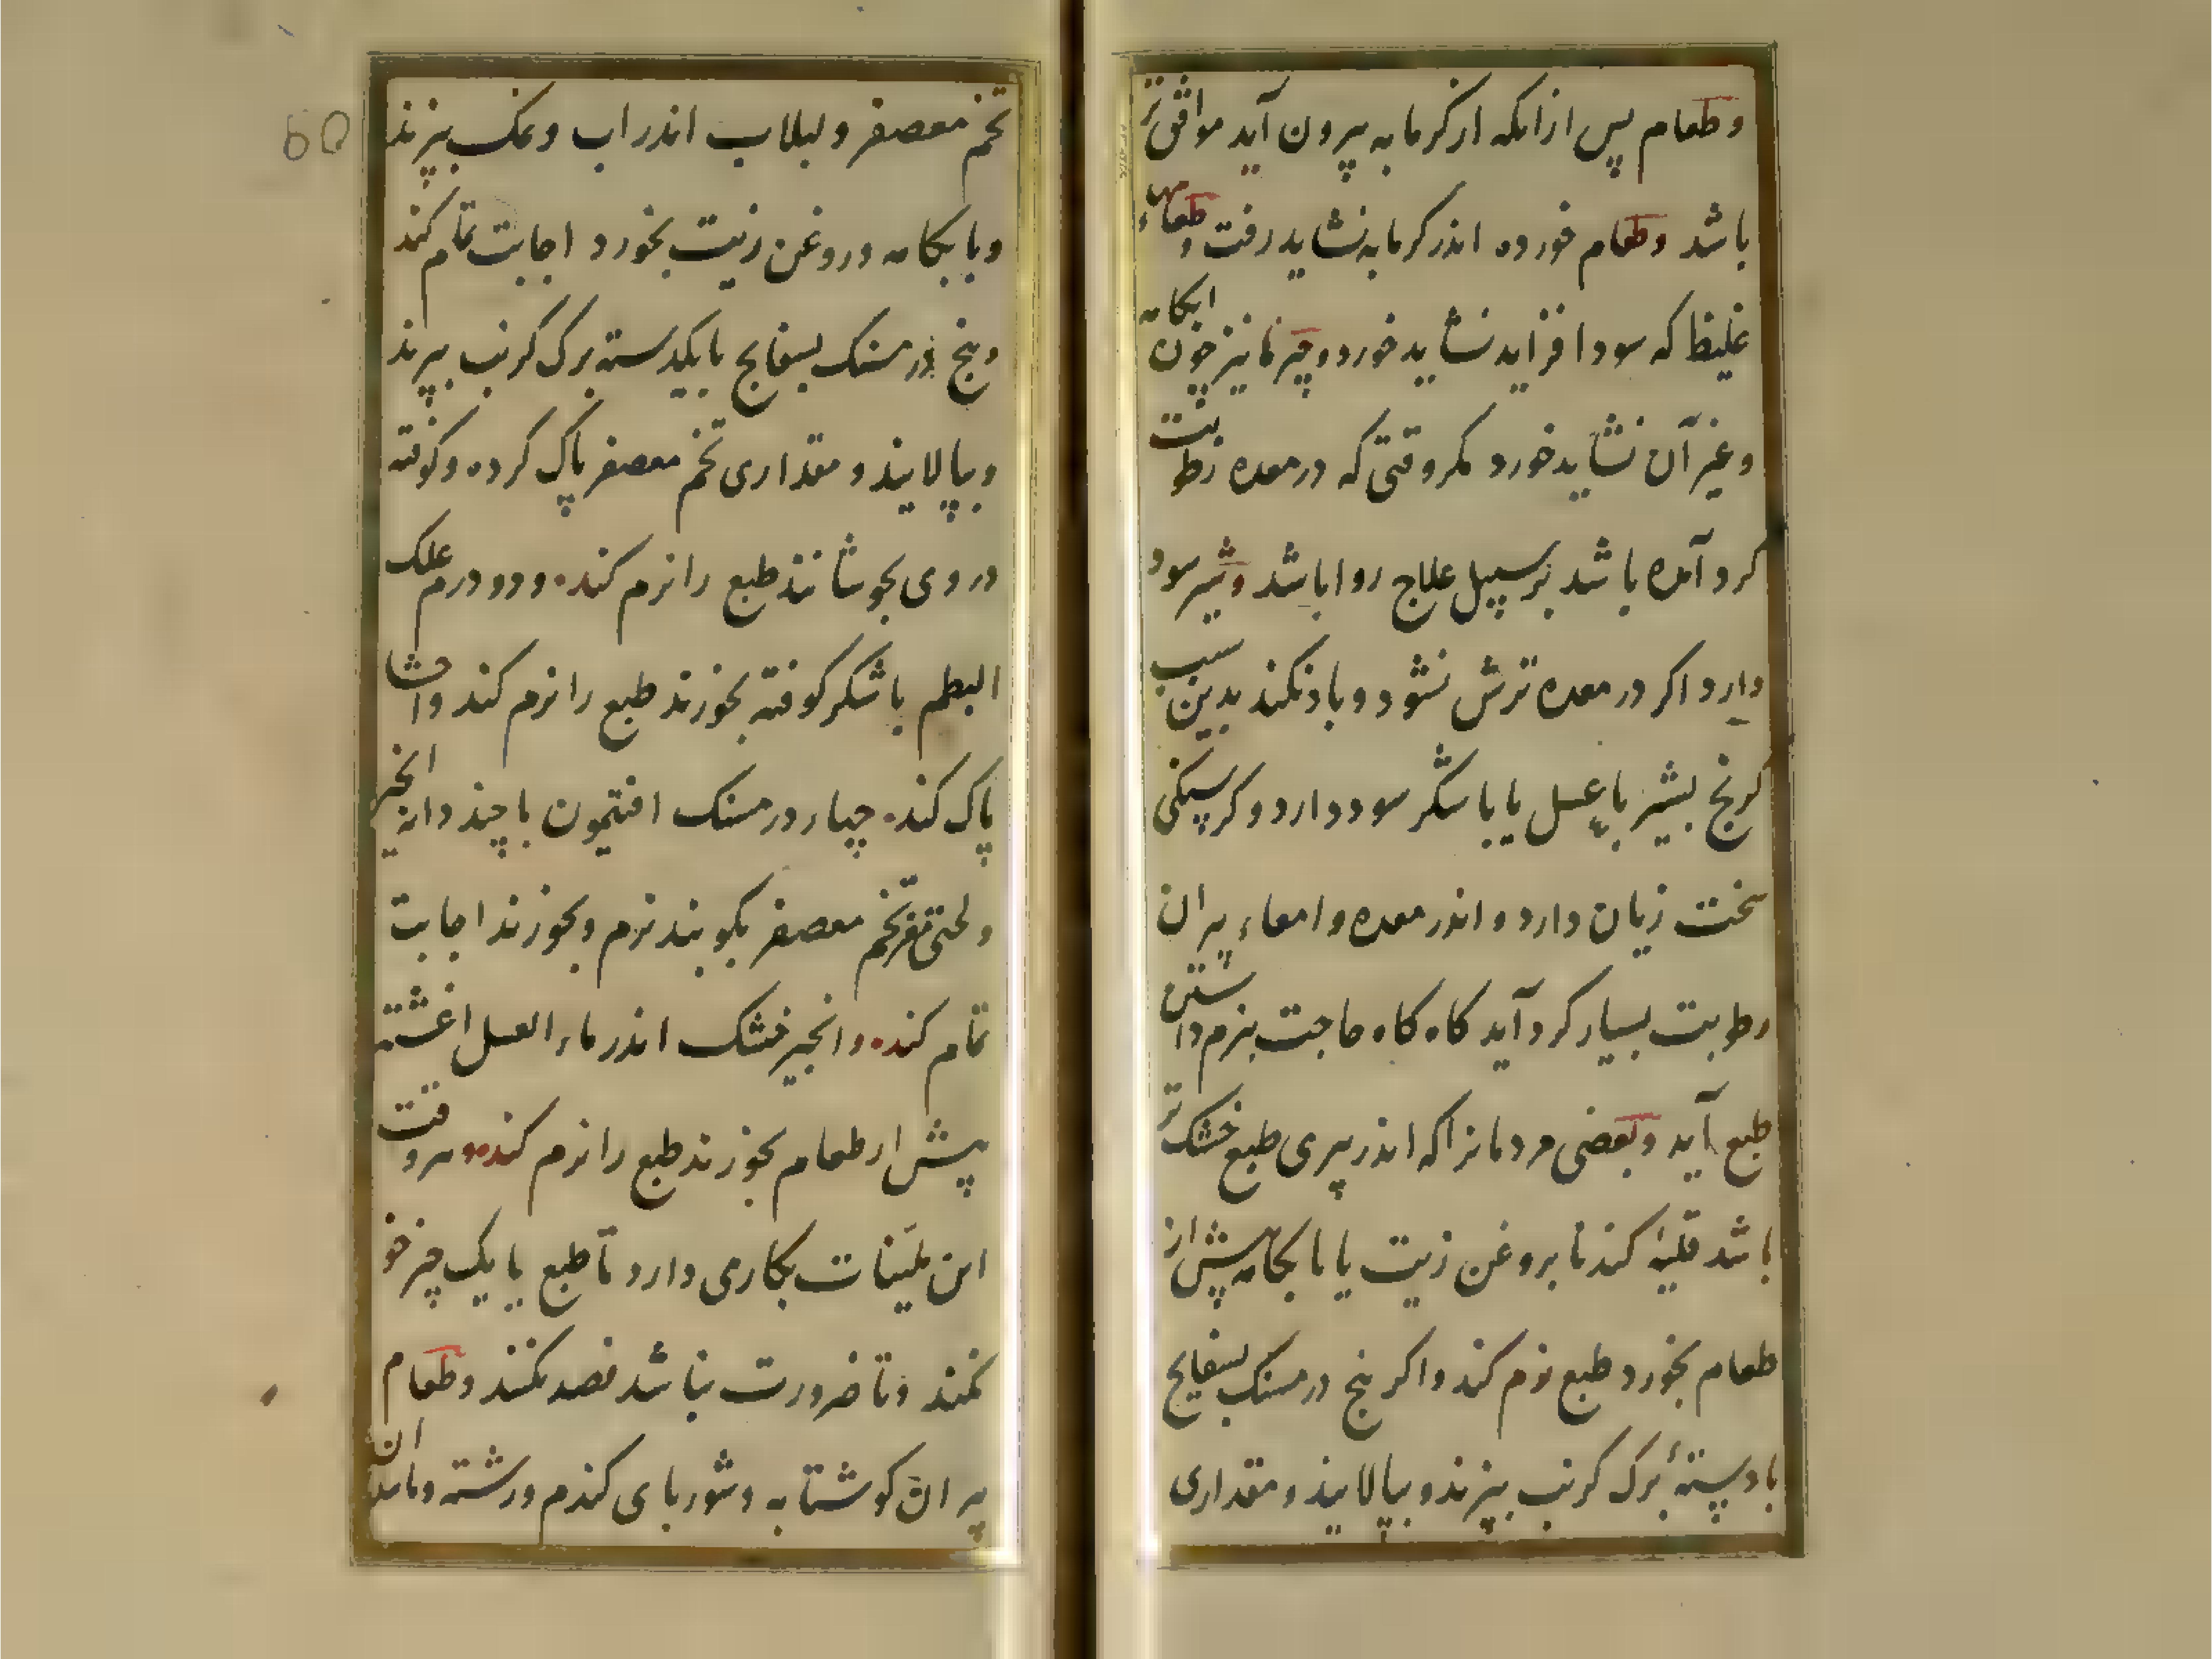 وطعام پس از انکه از کرمابه بیرون آید موافق تر
باشد وطعام خورده اندر کرمابه نشاید رفت و طعامهاء
غلیظ که سودا فزاید نشاید خورد و چیزها نیز چون ابکامه
وغیر آن نشاید خورد مکر وقتی که در معده رطوبت
کرد آمده باشد بر سپیل علاج روا باشد وشیر سود
دارد اکر در معده ترش نشود و باد نکند بدین سبب
کرنج بشیر با عسل یا با شکر سود دارد و کرسنکی
سخت زیان دارد و اندر معده و امعاء پیران
رطوبت بسیار کرد آید کاه کاه حاجت بنرم داشتن
طبع آید وبعضی مردمانرا که اندر پیری طبع خشک تر
باشد قلیهٔ کندنا بروغن زیت یا با بکامه پیش از
طعام بخورد طبع نرم کند واکر پنج درمسنک بسفایج
با دستهٔ برک کرنب بپزند و بپالایند و مقداری
60
تخم معصفر و لبلاب اندر اب ونمک بپزند
وبا بکامه وروغن زیت بخورد اجابت تمام کند
وپنج درمسنک بسفایج با یکدسته برک کرنب بپزند
وبپالایند و مقداری تخم معصفر پاک کرده و کوفته
در وی بجوشانند طبع را نرم کند ودو درم علک
البطم باشکر کوفته بخورند طبع را نرم کند واحشا
پاک کند چهار درمسنک افتیمون با چند دانه انجیر
ولختی مغز تخم معصفر بکوبند نرم وبخورند اجابت
تمام کند وانجیر خشک اندر ماء العسل اغشته
پیش از طعام بخورند طبع را نرم کند وهر وقت
این ملینات بکار می دارد تا طبع با یک چیز خو
نکند وتا ضرورت نباشد فصد نکنند وطعام
پیران کوشتابه وشوربای کندم ورشته ومانند ان